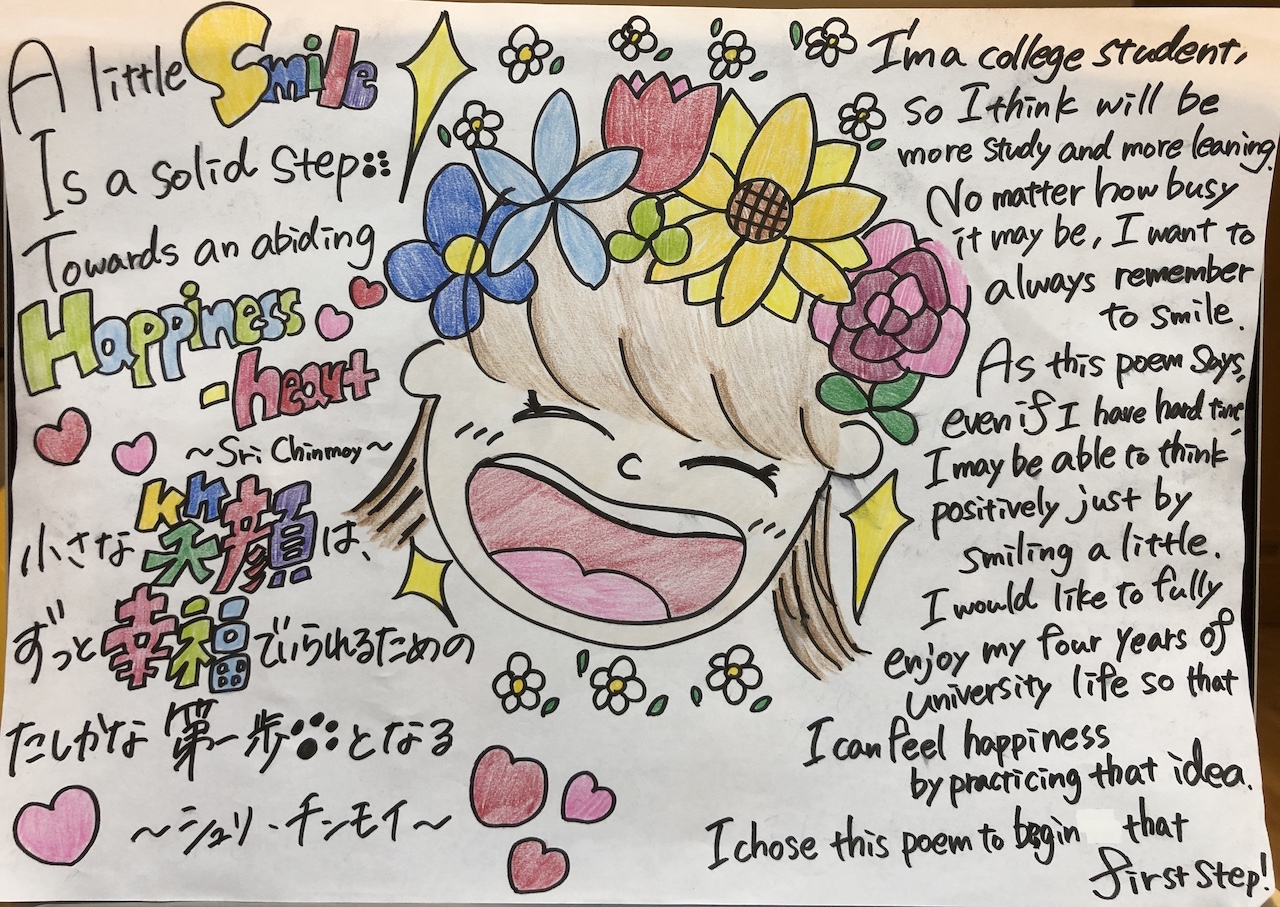 A little Smile
Is a solid step
Towards an abiding
Happiness
-heart
~Sri Chinmoy~
小さな笑顔は、
ずっと幸福でいられるための
たしかな第一歩となる
~シュリ・チンモイ~
I'm a college student,
so I think will be
more study and more leaning.
No matter how busy
it may be, I want to
always remember
to smile.
As this poem says,
even if I have hard time,
I may be able to think
positively just by
smiling a little.
I would like to fully
enjoy my four years of
university life so that
I can feel happiness
by practicing that idea.
I chose this poem to begin that
first step!